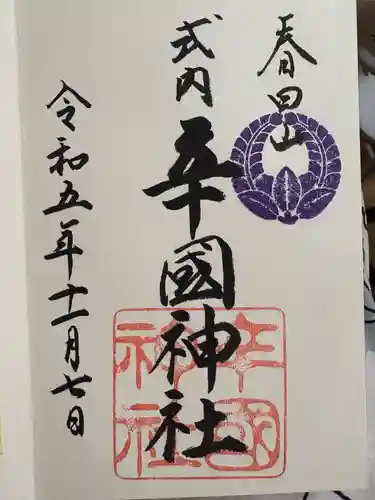 春日山
式内
國神社
令和五年十一月七日
神社
國